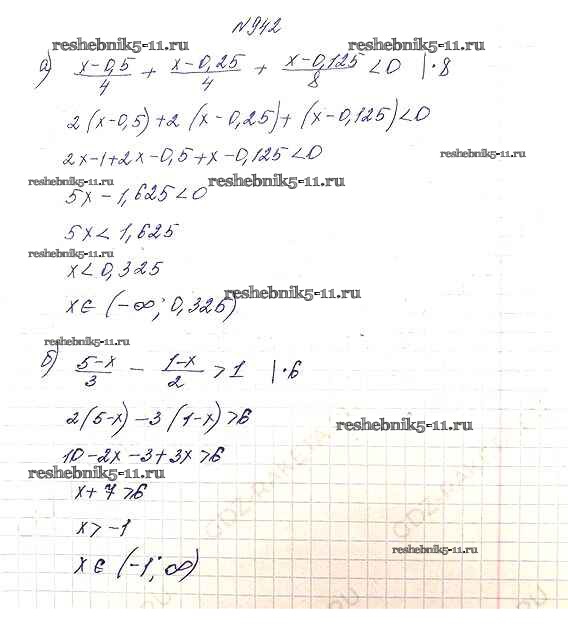 №942
reshebnik5-11.ru reshebnik5-11.ru
а) (x-0,5)/4 + (x-0,25)/4 + (x-0,125)/8 <0 |·8
2(x-0,5)+2(x-0,25)+(x-0,125)<0
2x-1+2x-0,5+x-0,125<0
reshebnik5-11.ru
reshebnik5-11.ru reshebnik5-11.ru
5x-1,625<0
5x<1,625
reshebnik5-11.ru
x<0,325
reshebnik5-11.ru
x∈(-∞;0,325)
reshebnik5-11.ru
б) (5-x)/3 - (1-x)/2 >1 |·6
2(5-x)-3(1-x)>6
reshebnik5-11.ru
10-2x-3+3x>6
reshebnik5-11.ru
x+7>6
x>-1
reshebnik5-11.ru
x∈(-1;∞)